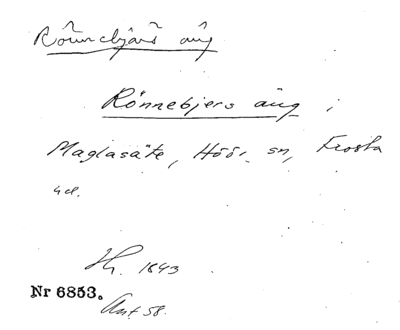 Rönnebjärs äng
Rönnebjers äng i
Maglasäte, Höör sn, Frosta
hd.
1843
Nr 6853.
Ant 58.